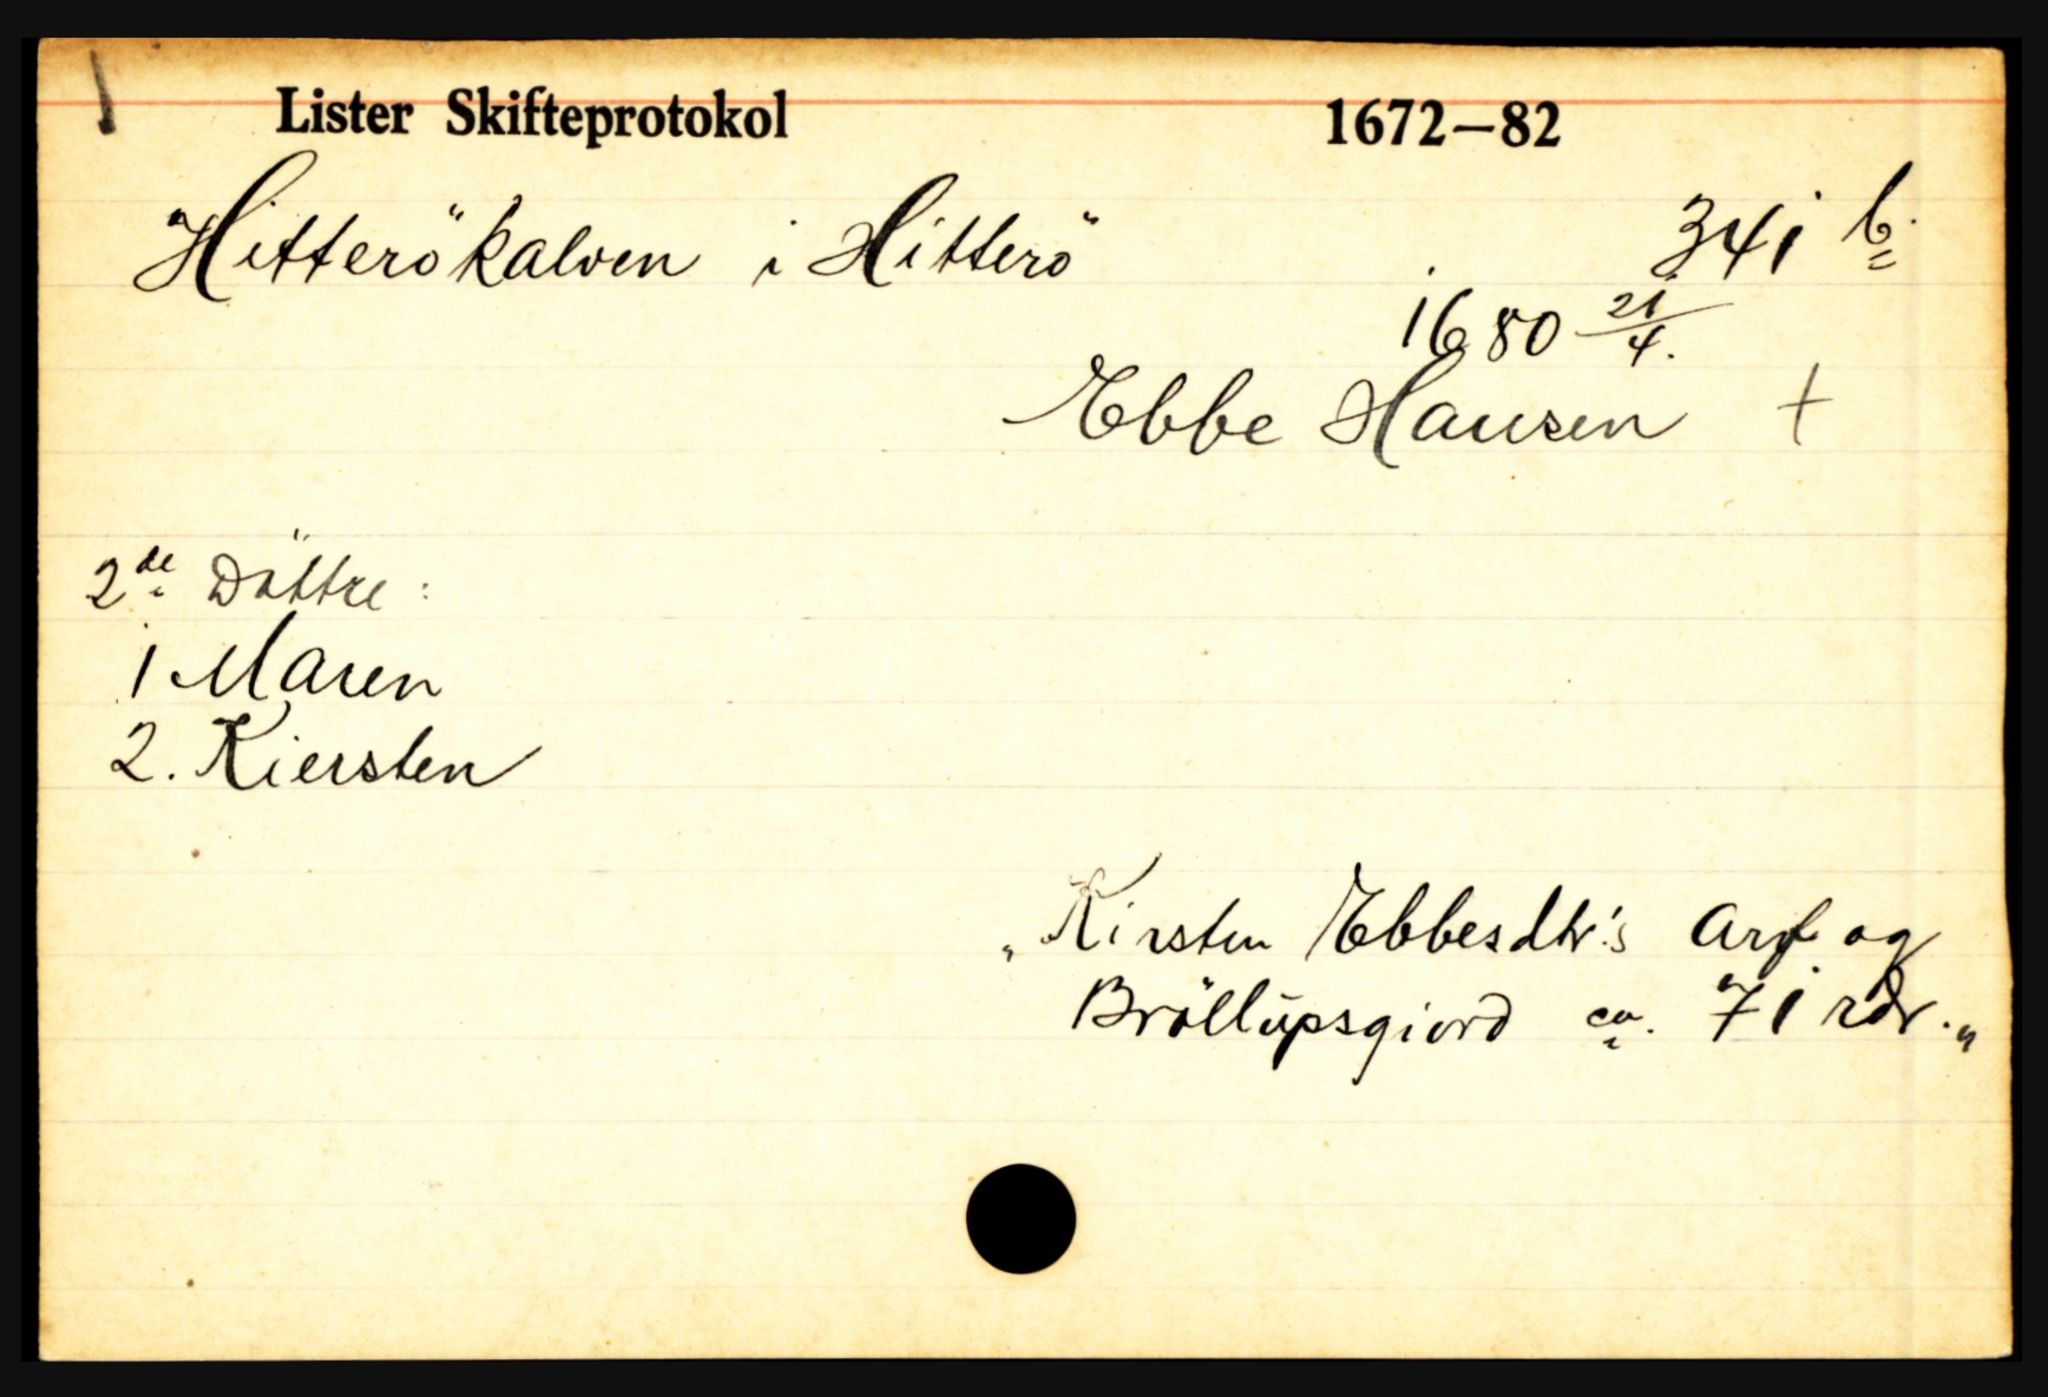 Lister Skifteprotokol 1672—82
Hitterökalven i Hitterö 341 b.
1680 21/4.
Ebbe Hansen +
2de Döttre:
1 Maren
2. Kiersten
"Kirsten Ebbesdtr's Arf og
Bröllupsgiord ca. 71 rdr."